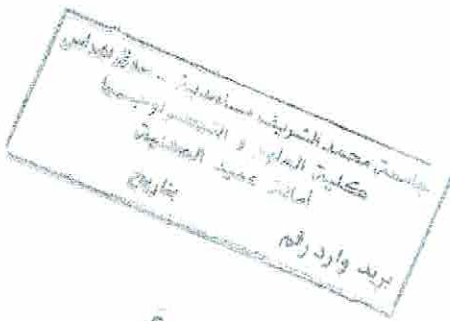 جامعة محمد الشريف مساعدية - سوق أهراس
كلية العلوم و التكنولوجيا
أمانة عميد الكلية
بتاريخ
بريد وارد رقم